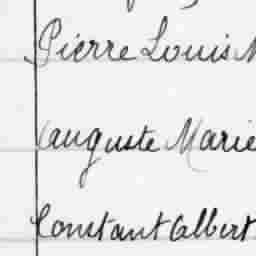 Pierre Louis
Auguste Marie
Constant Albert